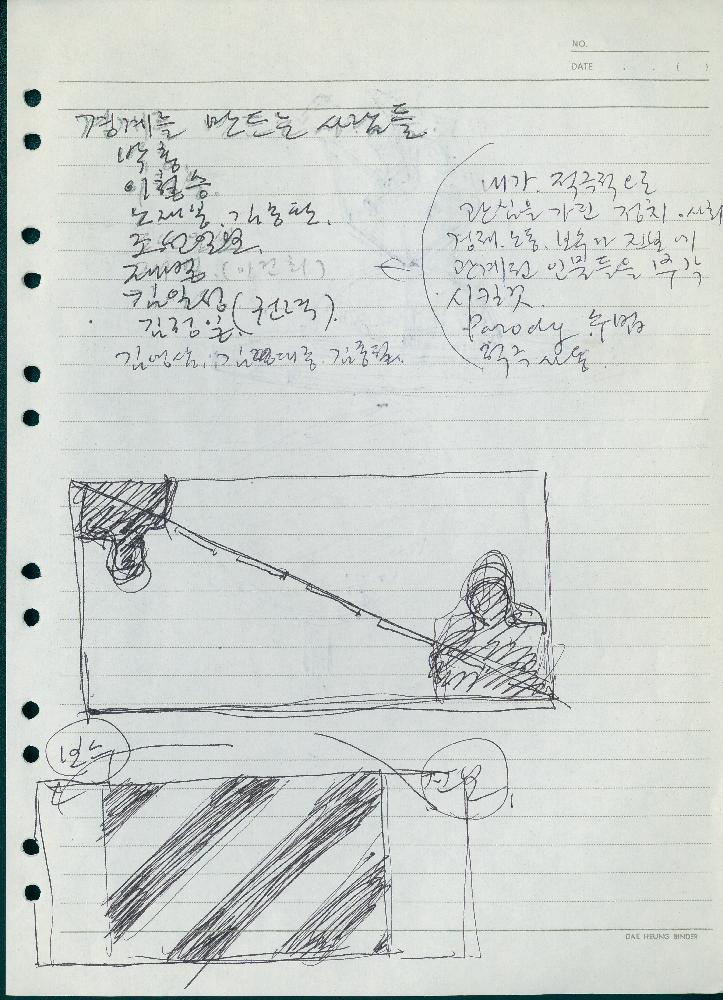 NO.
DATE . . ( )
경계를 만드는 사람들.
박홍.
이철승.
노재봉. 김동완.
조선일보.
재벌. (이건희)
김일성
김정일 (권력).
김영삼. 김대중. 김종필.
내가 적극적으로
관심을 가진 정치.사회
경제.노동. 보수나 진보에
관계된 인물들을 부각
시킬것.
Parody 수법
보수
진보
DAE HEUNG BINDER